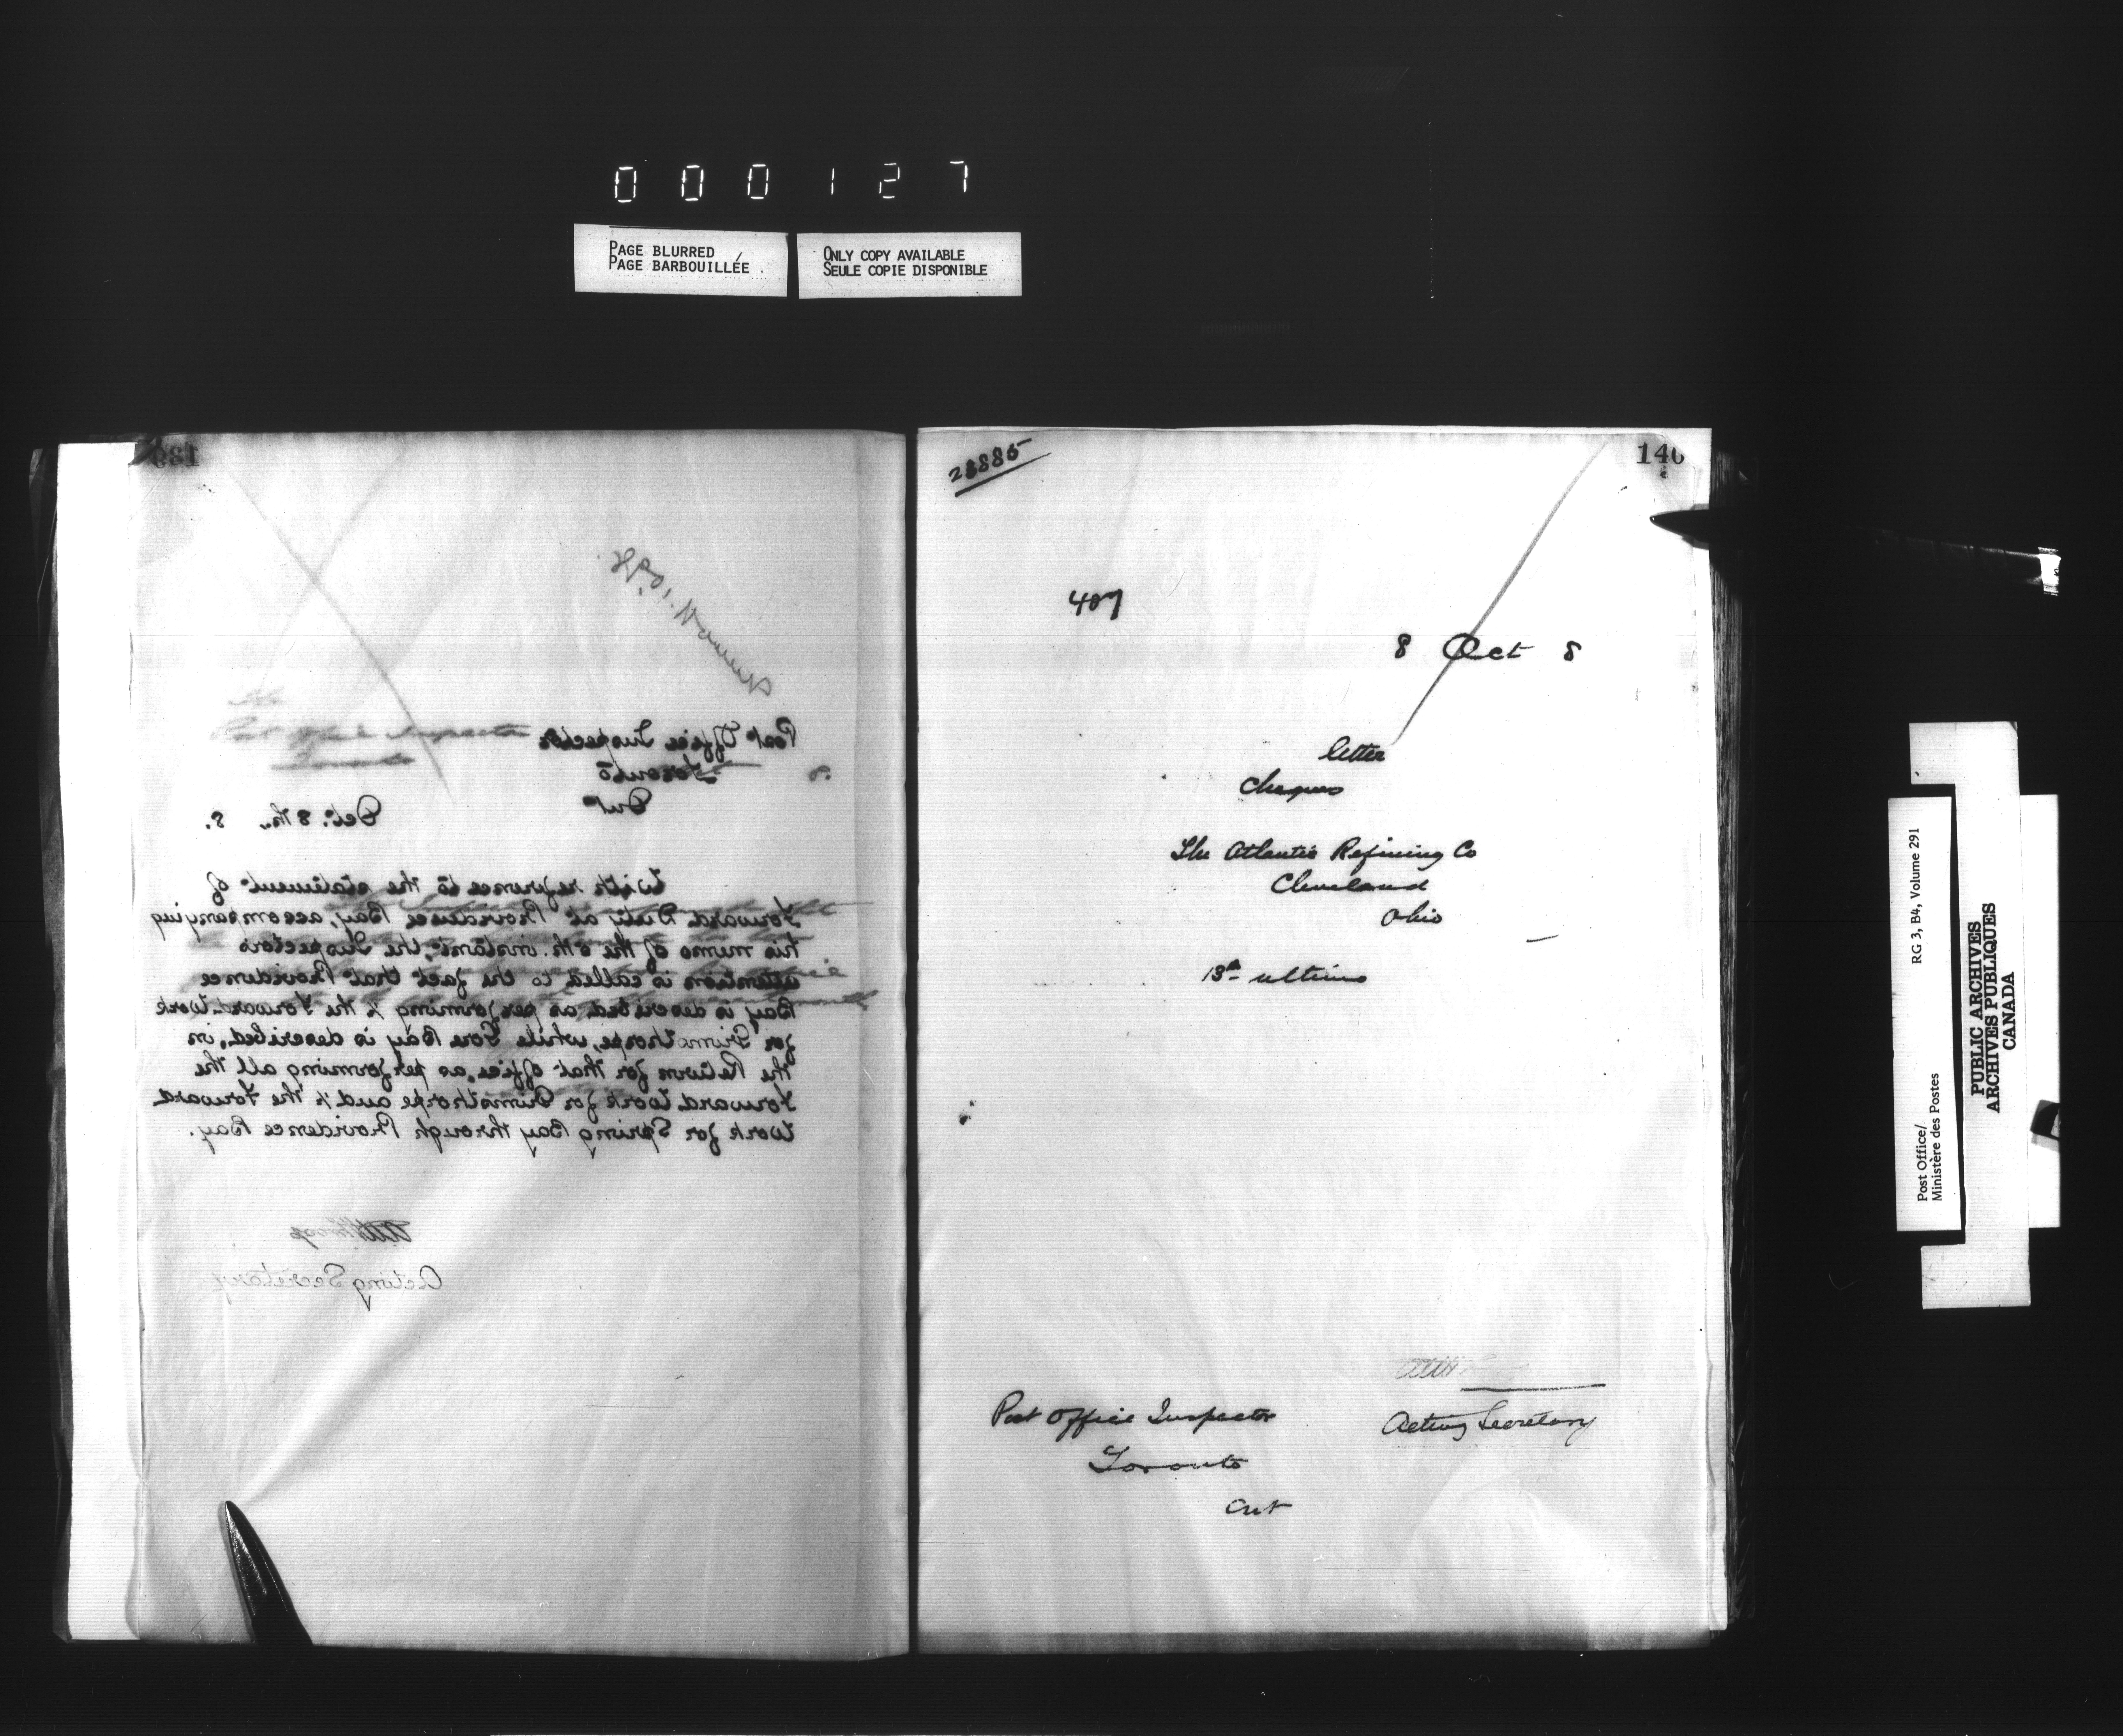 000127
PAGE BLURRED
PAGE BARBOUILLÉE
ONLY COPY AVAILABLE
SEULE COPIE DISPONIBLE
139
Post Office Inspector
Toronto
Ont
Oct. 8th. 8.
With reference to the statement of
Forward Duty at Providence Bay, accompanying
his memo of the 6th. instant, the Inspector's
attention is called to the fact that Providence
Bay is described as performing ½ the Forward Work
for Grimsthorpe, while Gore Bay is described, in
the Return for that office, as performing all the
Forward Work for Grimsthorpe and ½ the Forward
Work for Spring Bay through Providence Bay.
Acting Secretary
140
23885
407
8 Oct 8
letter
Cheques
The Atlantic Refining Co
Cleveland
Ohio
13th ultimo
Acting Secretary
Post Office Inspector
Toronto
Ont
RG 3, B4, Volume 291
Post Office/
Ministère des Postes
PUBLIC ARCHIVES
ARCHIVES PUBLIQUES
CANADA